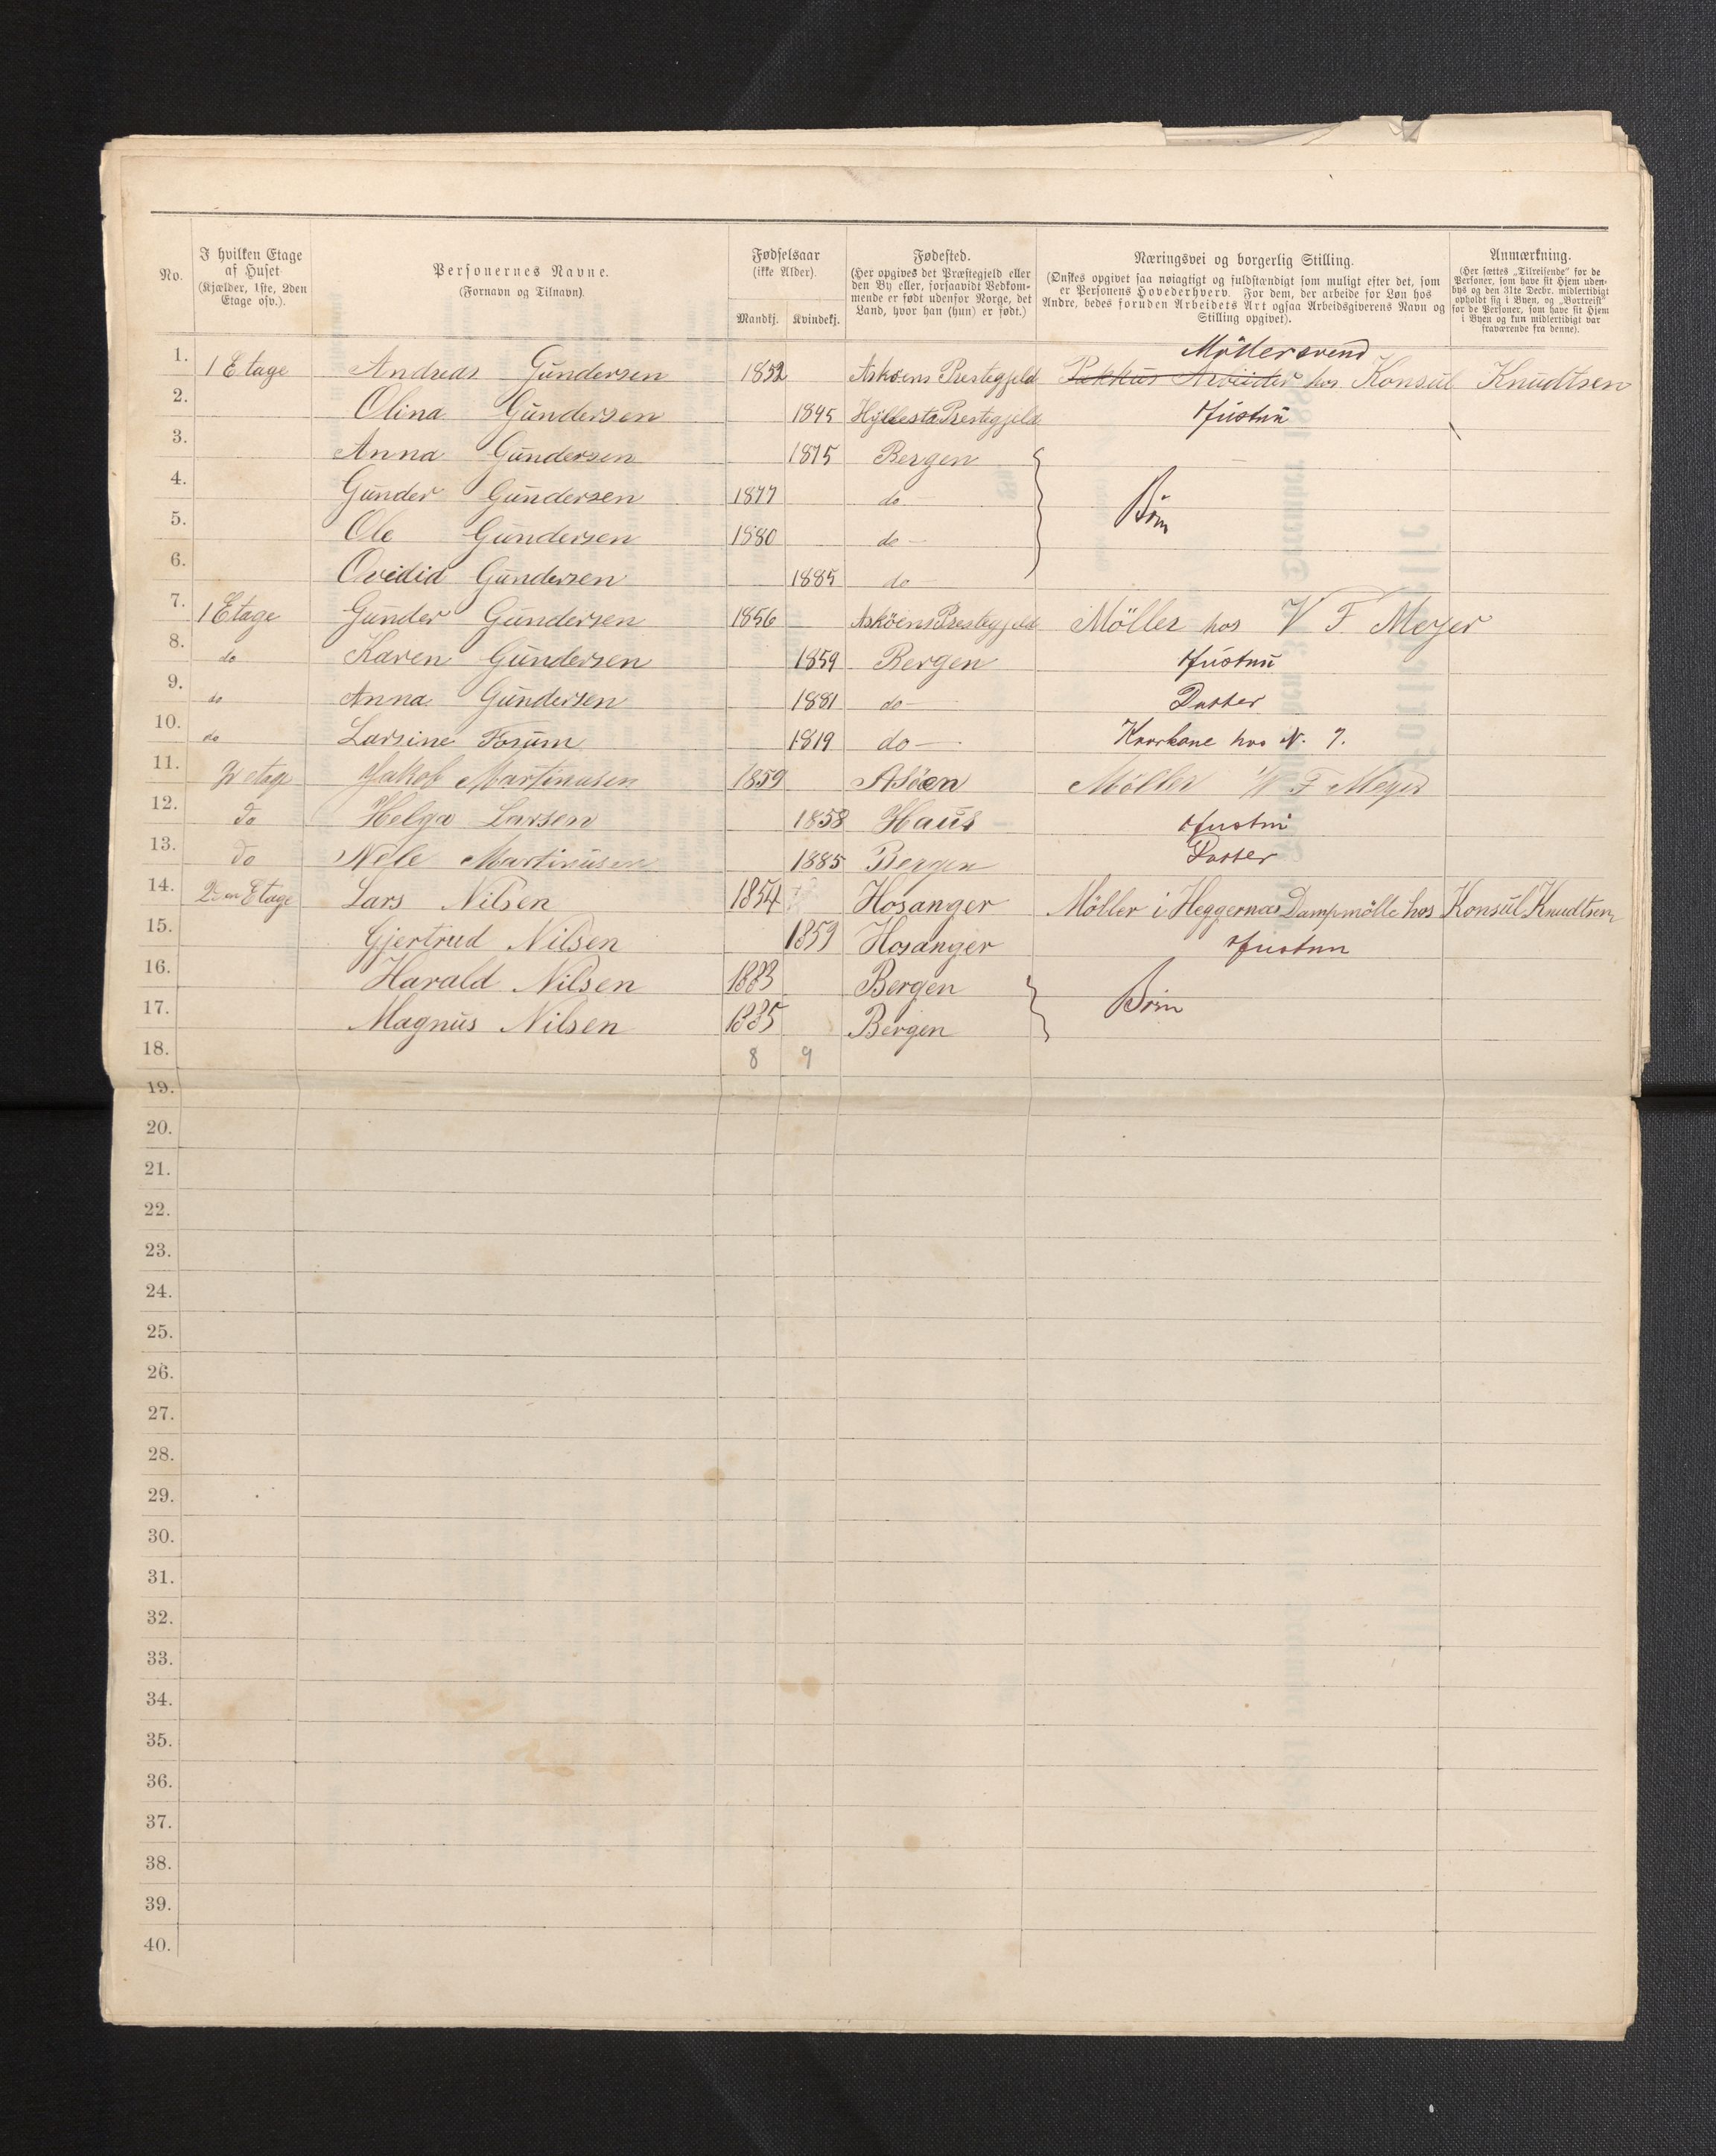 No.
I hvilken Etage af Huset (Kjælder, 1ste, 2den Etage osv.).
Personernes Navne. (Fornavn og Tilnavn).
Fødselsaar (ikke Alder). Mandkj. Kvindekj.
Fødested. (Her opgives det Præstegjeld eller den By eller, forsaavidt Vedkommende er født udenfor Norge, det Land, hvor han (hun) er født.)
Næringsvei og borgerlig Stilling. (Ønskes opgivet saa nøiagtigt og fuldstændigt som muligt efter det, som er Personens Hovederhverv. For dem, der arbeide for Løn hos Andre, bedes foruden Arbeidets Art ogsaa Arbeidsgiverens Navn og Stilling opgivet).
Anmærkning. (Her sættes „Tilreisende" for de Personer, som have sit Hjem udenbys og den 31te Decbr. midlertidigt opholdt sig i Byen, og „Bortreist" for de Personer, som have sit Hjem i Byen og kun midlertidigt var fraværende fra denne).
Möllersvend
1. 1 Etage Andreas Gundersen 1852 Asköens Prestegjeld Pakhus Arbeider hos Konsul Knudtsen
2. Olina Gundersen 1845 Hyllesta Prestegjeld Hustru
3. Anna Gundersen 1875 Bergen
4. Gunder Gundersen 1877 do Börn
5. Ole Gundersen 1880 do
6. Ovidia Gundersen 1885 do
7. 1 Etage Gunder Gundersen 1856 Asköens Prestegjeld Möller hos V F. Meyer
8. do Karen Gundersen 1859 Bergen Hustru
9. do Anna Gundersen 1881 do Datter
10. do Larsine Fosum 1819 do hos N. 7.
11. etage Jakob Martinusen 1859 Asöen Möller W F Meyer
12. do Helga Larsen 1858 Haus Hustru
13. do Nele Martinusen 1885 Bergen Datter
14. 2den Etage Lars Nilsen 1854 Hosanger Möller i Heggernæs Dampmölle hos Konsul Knudtsen
15. Gjertrud Nilsen 1859 Hosanger Hustru
16. Harald Nilsen 1883 Bergen Börn
17. Magnus Nilsen 1885 Bergen
18. 8 9
19.
20.
21.
22.
23.
24.
25.
26.
27.
28.
29.
30.
31.
32.
33.
34.
35.
36.
37.
38.
39.
40.